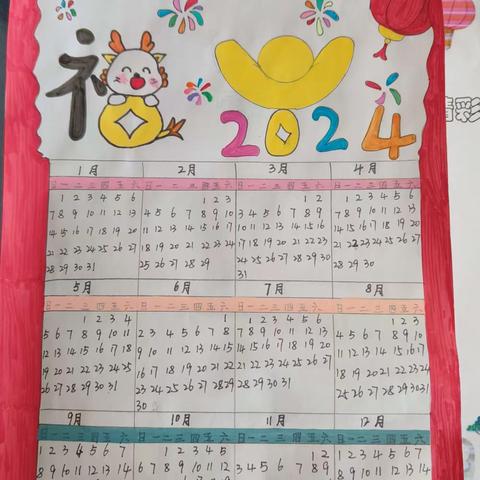 礻
2024
彩
1月
日 一 二 三 四 五 六
1 2 3 4 5 6
7 8 9 10 11 12 13
14 15 16 17 18 19 20
21 22 23 24 25 26 27
28 29 30 31
2月
日 一 二 三 四 五 六
1 2 3
4 5 6 7 8 9 10
11 12 13 14 15 16 17
18 19 20 21 22 23 24
25 26 27 28 29
3月
日 一 二 三 四 五 六
1 2
3 4 5 6 7 8 9
10 11 12 13 14 15 16
17 18 19 20 21 22 23
24 25 26 27 28 29 30
31
4月
日 一 二 三 四 五 六
1 2 3 4 5 6
7 8 9 10 11 12 13
14 15 16 17 18 19 20
21 22 23 24 25 26 27
28 29 30
5月
日 一 二 三 四 五 六
1 2 3 4
5 6 7 8 9 10 11
12 13 14 15 16 17 18
19 20 21 22 23 24 25
26 27 28 29 30 31
6月
日 一 二 三 四 五 六
1
2 3 4 5 6 7 8
9 10 11 12 13 14 15
16 17 18 19 20 21 22
23 24 25 26 27 28 29
30
7月
日 一 二 三 四 五 六
1 2 3 4 5 6
7 8 9 10 11 12 13
14 15 16 17 18 19 20
21 22 23 24 25 26 27
28 29 30 31
8月
日 一 二 三 四 五 六
1 2 3
4 5 6 7 8 9 10
11 12 13 14 15 16 17
18 19 20 21 22 23 24
25 26 27 28 29 30 31
9月
日 一 二 三 四 五 六
1 2 3 4 5 6 7
8 9 10 11 12 13 14
10月
日 一 二 三 四 五 六
1 2 3 4 5
6 7 8 9 10 11 12
11月
日 一 二 三 四 五 六
1 2
3 4 5 6 7 8 9
12月
日 一 二 三 四 五 六
1 2 3 4 5 6 7
8 9 10 11 12 13 14